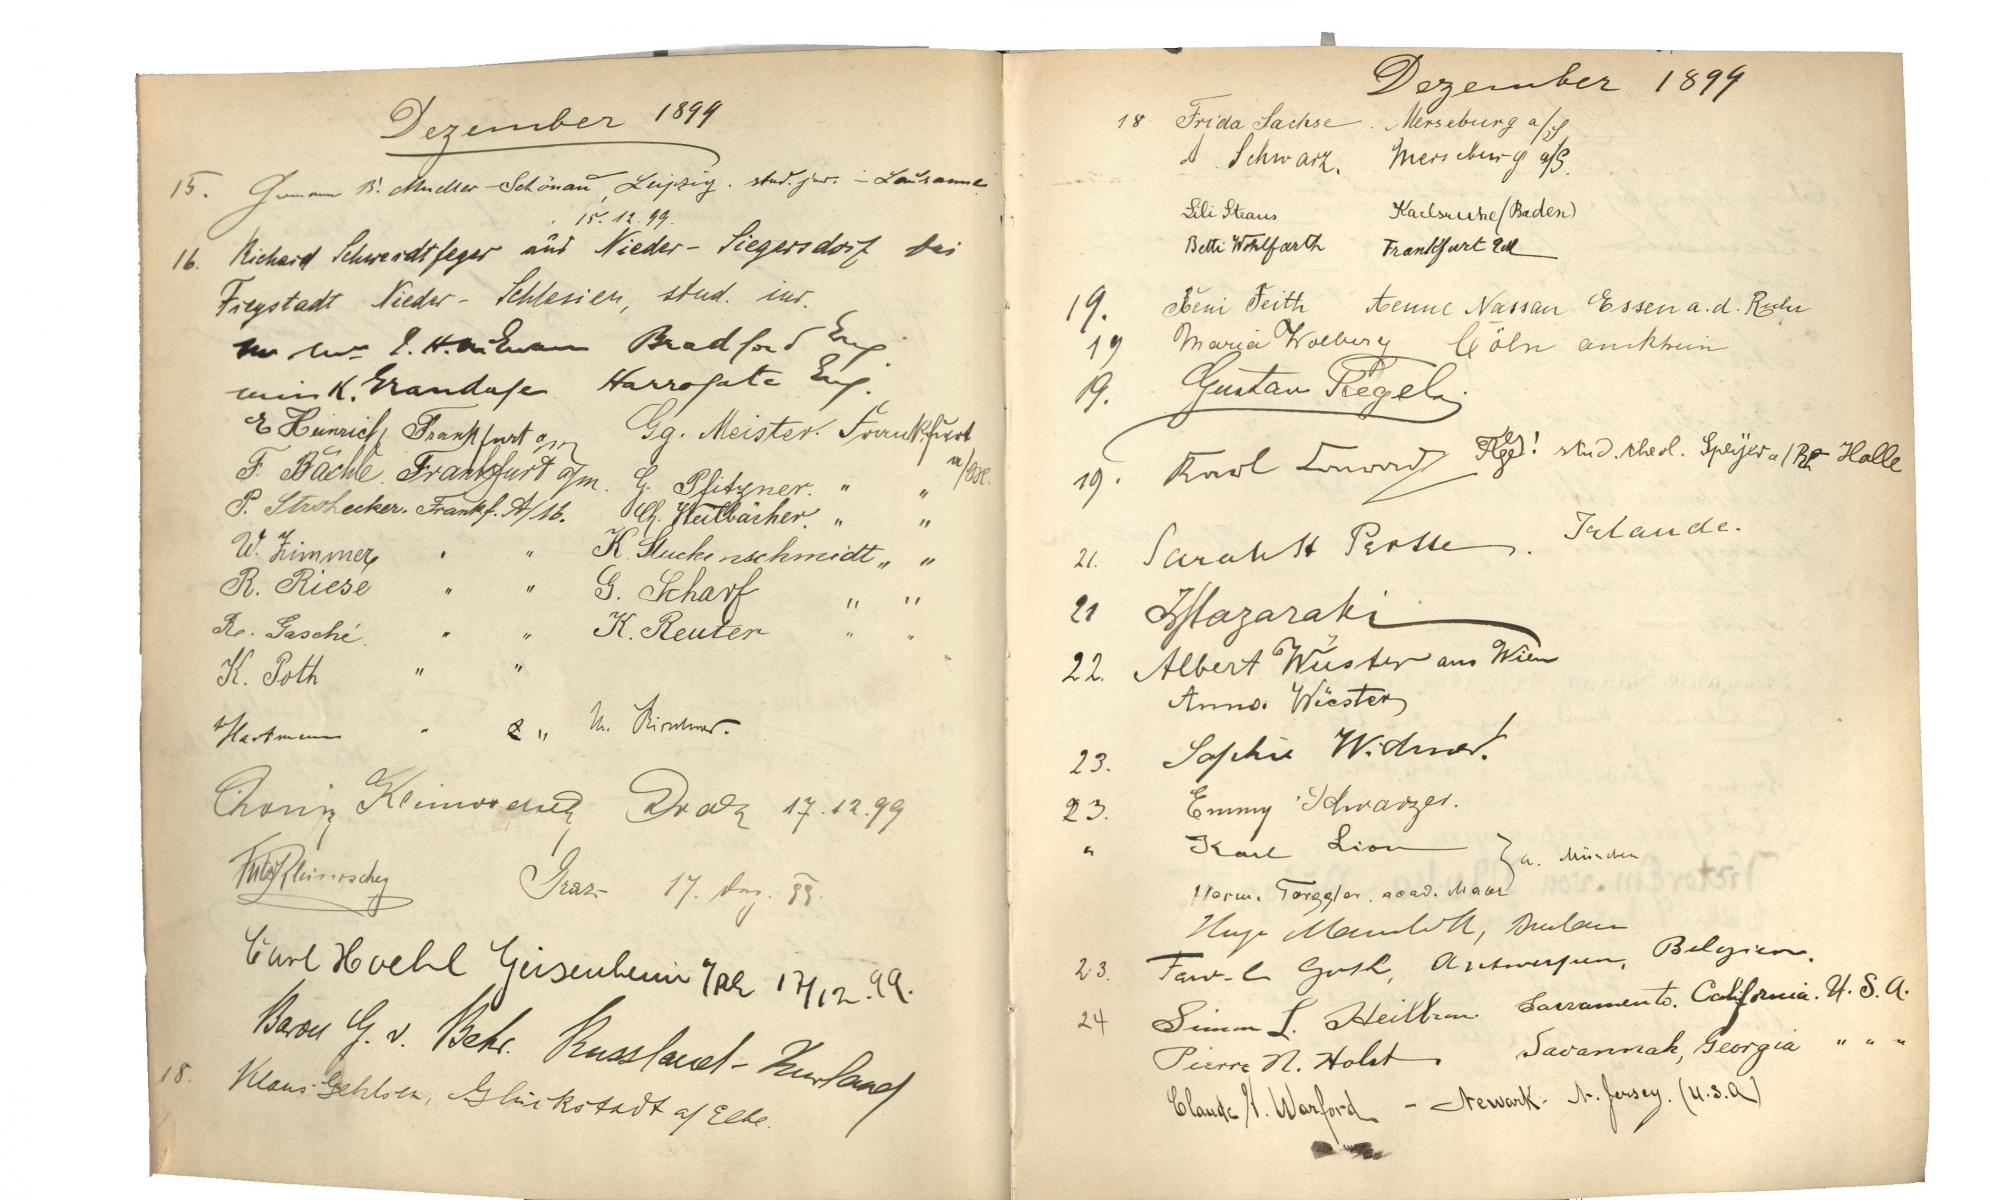 Dezember 1899
15. Mueller-Schönau, Leipzig. stud. jur. - Lausanne
15.12.99.
16. Richard Schwerdtfeger aus Nieder-Siegersdorf bei
Freystadt Nieder-Schlesien, stud. iur.
Bradford Eng.
K. Harrogate Eng.
E Heinrich Frankfurt a/m Gg. Meister. Frankfurt a/M.
F. Bächle. Frankfurt a/m. G. Pfitzner. " "
P. Strohecker. Frankf. A/M. Ch. Heilbächer. " "
W. Zimmer " " K. Stuckenschmidt " "
R. Riese " " G. Scharf " "
R. Gasché " " K. Reuter " "
K. Poth " "
Hartmann " & "
Graz 17.12.99
Fritz Kleinoscheg Graz 17. Dez. 99.
Carl Hoehl Geisenheim a/Rh 17/12.99.
Baron G. v. Behr. Russland-Kurland
18. Klaus Gehlsen, Glückstadt a/ Elbe.
Dezember 1899
18 Frida Sachse. Merseburg a/S
A Schwarz. Merseburg a/S.
Lili Straus Karlsruhe (Baden)
Betti Wohlfarth Frankfurt
19. Feith Aenne Nassau Essen a. d. Ruhr
19 Maria Wolberg Cöln am Rhein
19. Gustav Regel.
19. Karl stud. theol. Speyer a/Rh Halle
21. Sarah H Persse. Irlande.
21 Mazaraki
22. Albert Wüster aus Wien
Anna Wüster
23. Sophie Widmer.
23. Emmy Schwarzer.
" Karl Lion a. München
Herm. Torggler. acad. Maler
Hugo
23. Antwerpen, Belgien.
24 Simon L. Heilbron. Sacramento. California. U.S.A.
Pierre N. Holst. Savannah, Georgia " " "
Claude H. Warford - Newark - N. Jersey. (U.S.A)